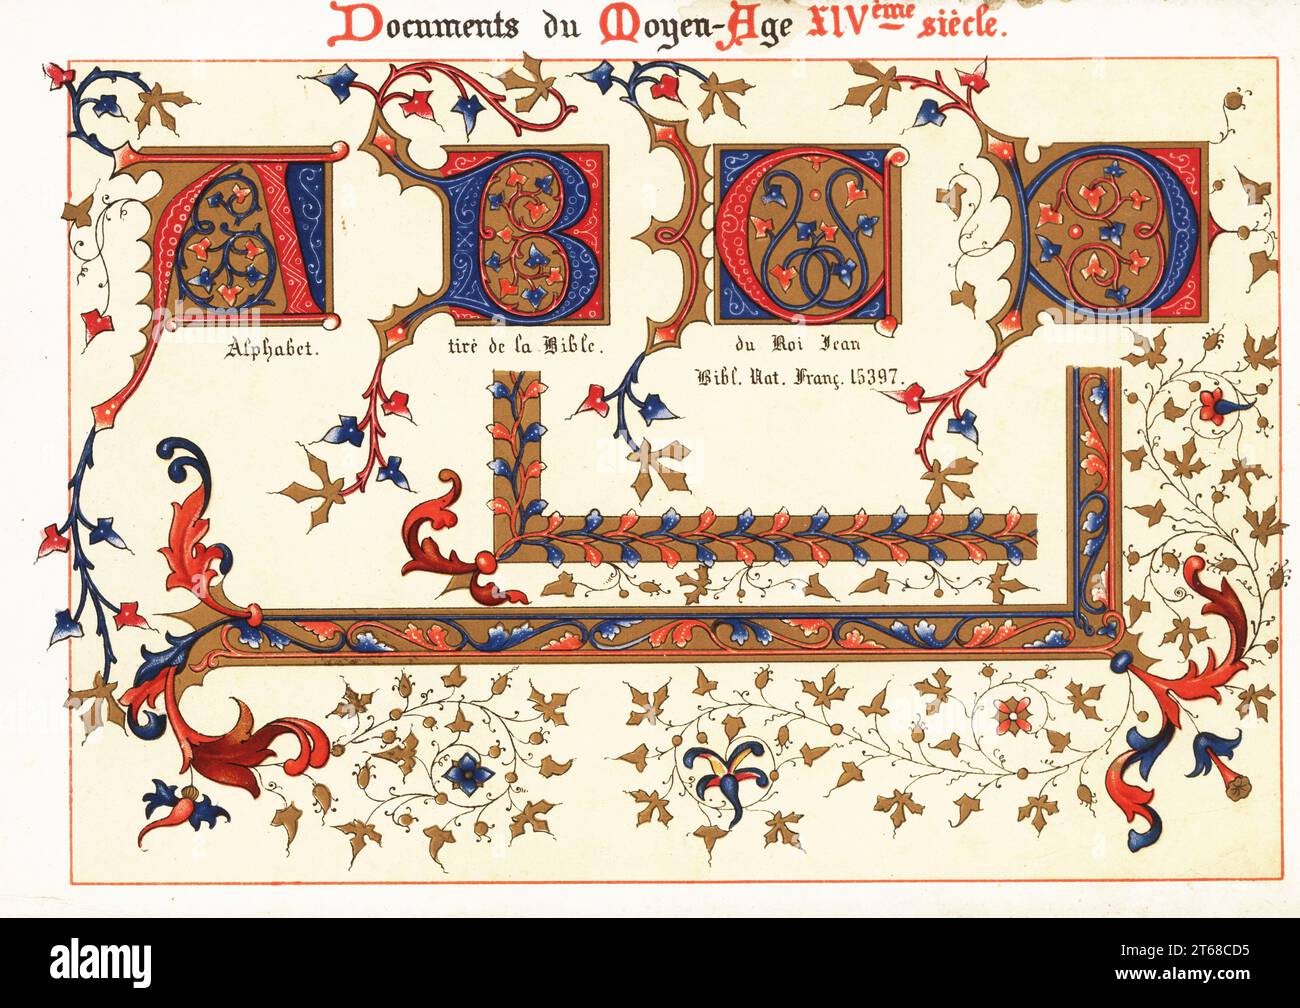 Documents du Moyen-Age XIVème siècle.
A B C D
Alphabet. tiré de la Bible. du Roi Jean
Bibl. Nat. Franç. 15397.
alamy
Image ID: 2T68CD5
www.alamy.com